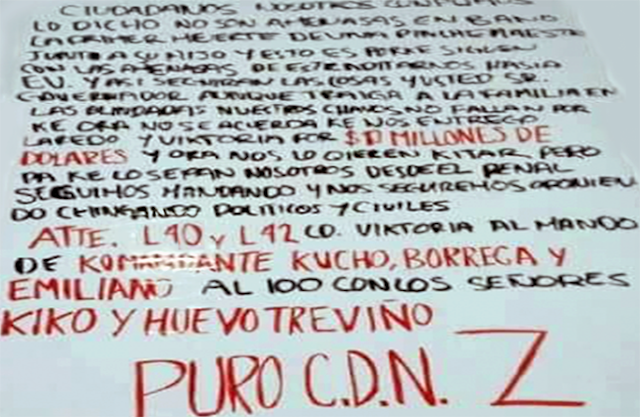 CIUDADANOS NOSOTROS CUMPLIMOS
LO DICHO NO SON AMENASAS EN BANO
LA PRIMER MUERTE DE UNA PINCHE MAESTR
JUNTO A SU HIJO Y ESTO ES PORKE SIGUEN
CON LAS AMENASAS DE ESTRADITARNOS HASIA
EU. Y ASI SEGUIRAN LAS COSAS Y USTED SR.
GOVERNADOR AUNQUE TRAIGA A LA FAMILIA EN
LAS BLINDADAS NUESTROS CHAVOS NO FALLAN POR
KE ORA NO SE ACUERDA KE NOS ENTREGO
LAREDO Y VIKTORIA POR MILLONES DE
DOLARES Y ORA NOS LO QIEREN KITAR PERO
PA KE LO SEPAN NOSOTROS DESDE EL PENAL
SEGUIMOS MANDANDO Y NOS SEGUIREMOS OPONIEN
DO CHINGANDO POLITICOS Y CIVILES
ATTE. L40 Y L42 CD. VIKTORIA AL MANDO
DE KOMANDANTE KUCHO, BORREGA Y
EMILIANO AL 100 CON LOS SEÑORES
KIKO Y HUEVO TREVIÑO
PURO C.D.N. Z